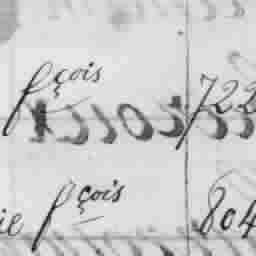 fçois 722
ie fçois 804